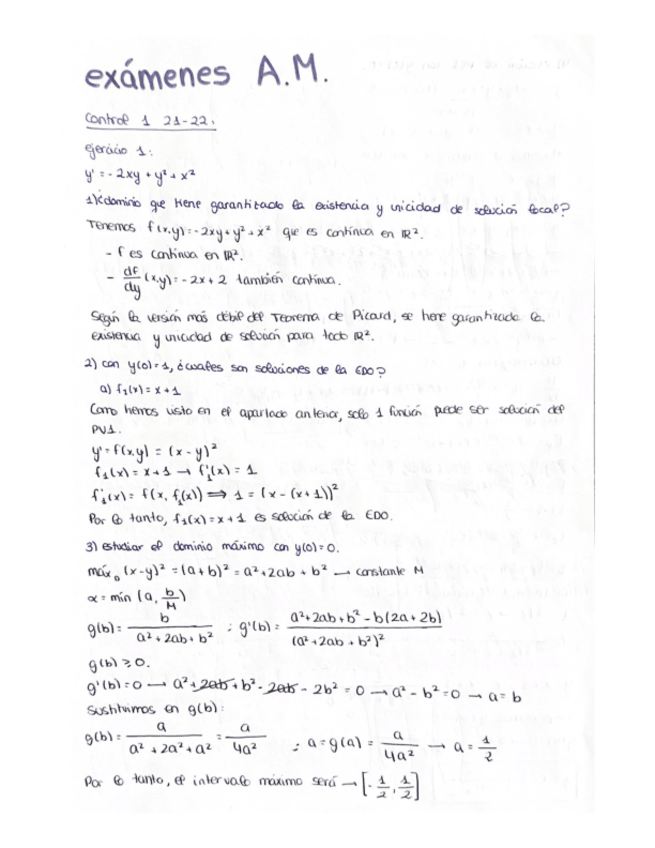 exámenes A.M.
Control 1 21-22.
ejercicio 1:
y' = -2xy + y² + x²
1) ¿dominio que tiene garantizado la existencia y unicidad de solución local?
Tenemos f(x,y) = -2xy + y² + x² que es continua en ℝ².
- f es continua en ℝ².
- df/dy (x,y) = -2x + 2 también continua.
Según la versión más débil del Teorema de Picard, se tiene garantizada la
existencia y unicidad de solución para todo ℝ².
2) con y(0) = 1, ¿cuáles son soluciones de la EDO?
a) f₁(x) = x + 1
Como hemos visto en el apartado anterior, solo 1 función puede ser solución del
PVI.
y' = f(x,y) = (x - y)²
f₁(x) = x + 1 → f₁'(x) = 1
f₁'(x) = f(x, f₁(x)) ⟹ 1 = (x - (x+1))²
Por lo tanto, f₁(x) = x + 1 es solución de la EDO.
3) estudiar el dominio máximo con y(0) = 0.
máx₀ (x-y)² = (a+b)² = a² + 2ab + b² → constante M
α = mín (a, b/M)
g(b) = b/(a² + 2ab + b²) ; g'(b) = (a² + 2ab + b² - b(2a + 2b))/(a² + 2ab + b²)²
g(b) ≥ 0.
g'(b) = 0 → a² + 2ab + b² - 2ab - 2b² = 0 → a² - b² = 0 → a = b
Sustituimos en g(b):
g(b) = a/(a² + 2a² + a²) = a/4a² ; a = g(a) = a/4a² → a = 1/2
Por lo tanto, el intervalo máximo será → [-1/2, 1/2]